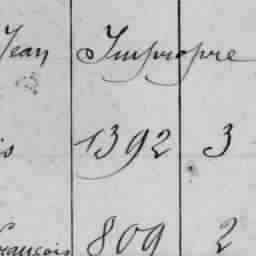 Jean Impropre
is 1392 3
François 809 2